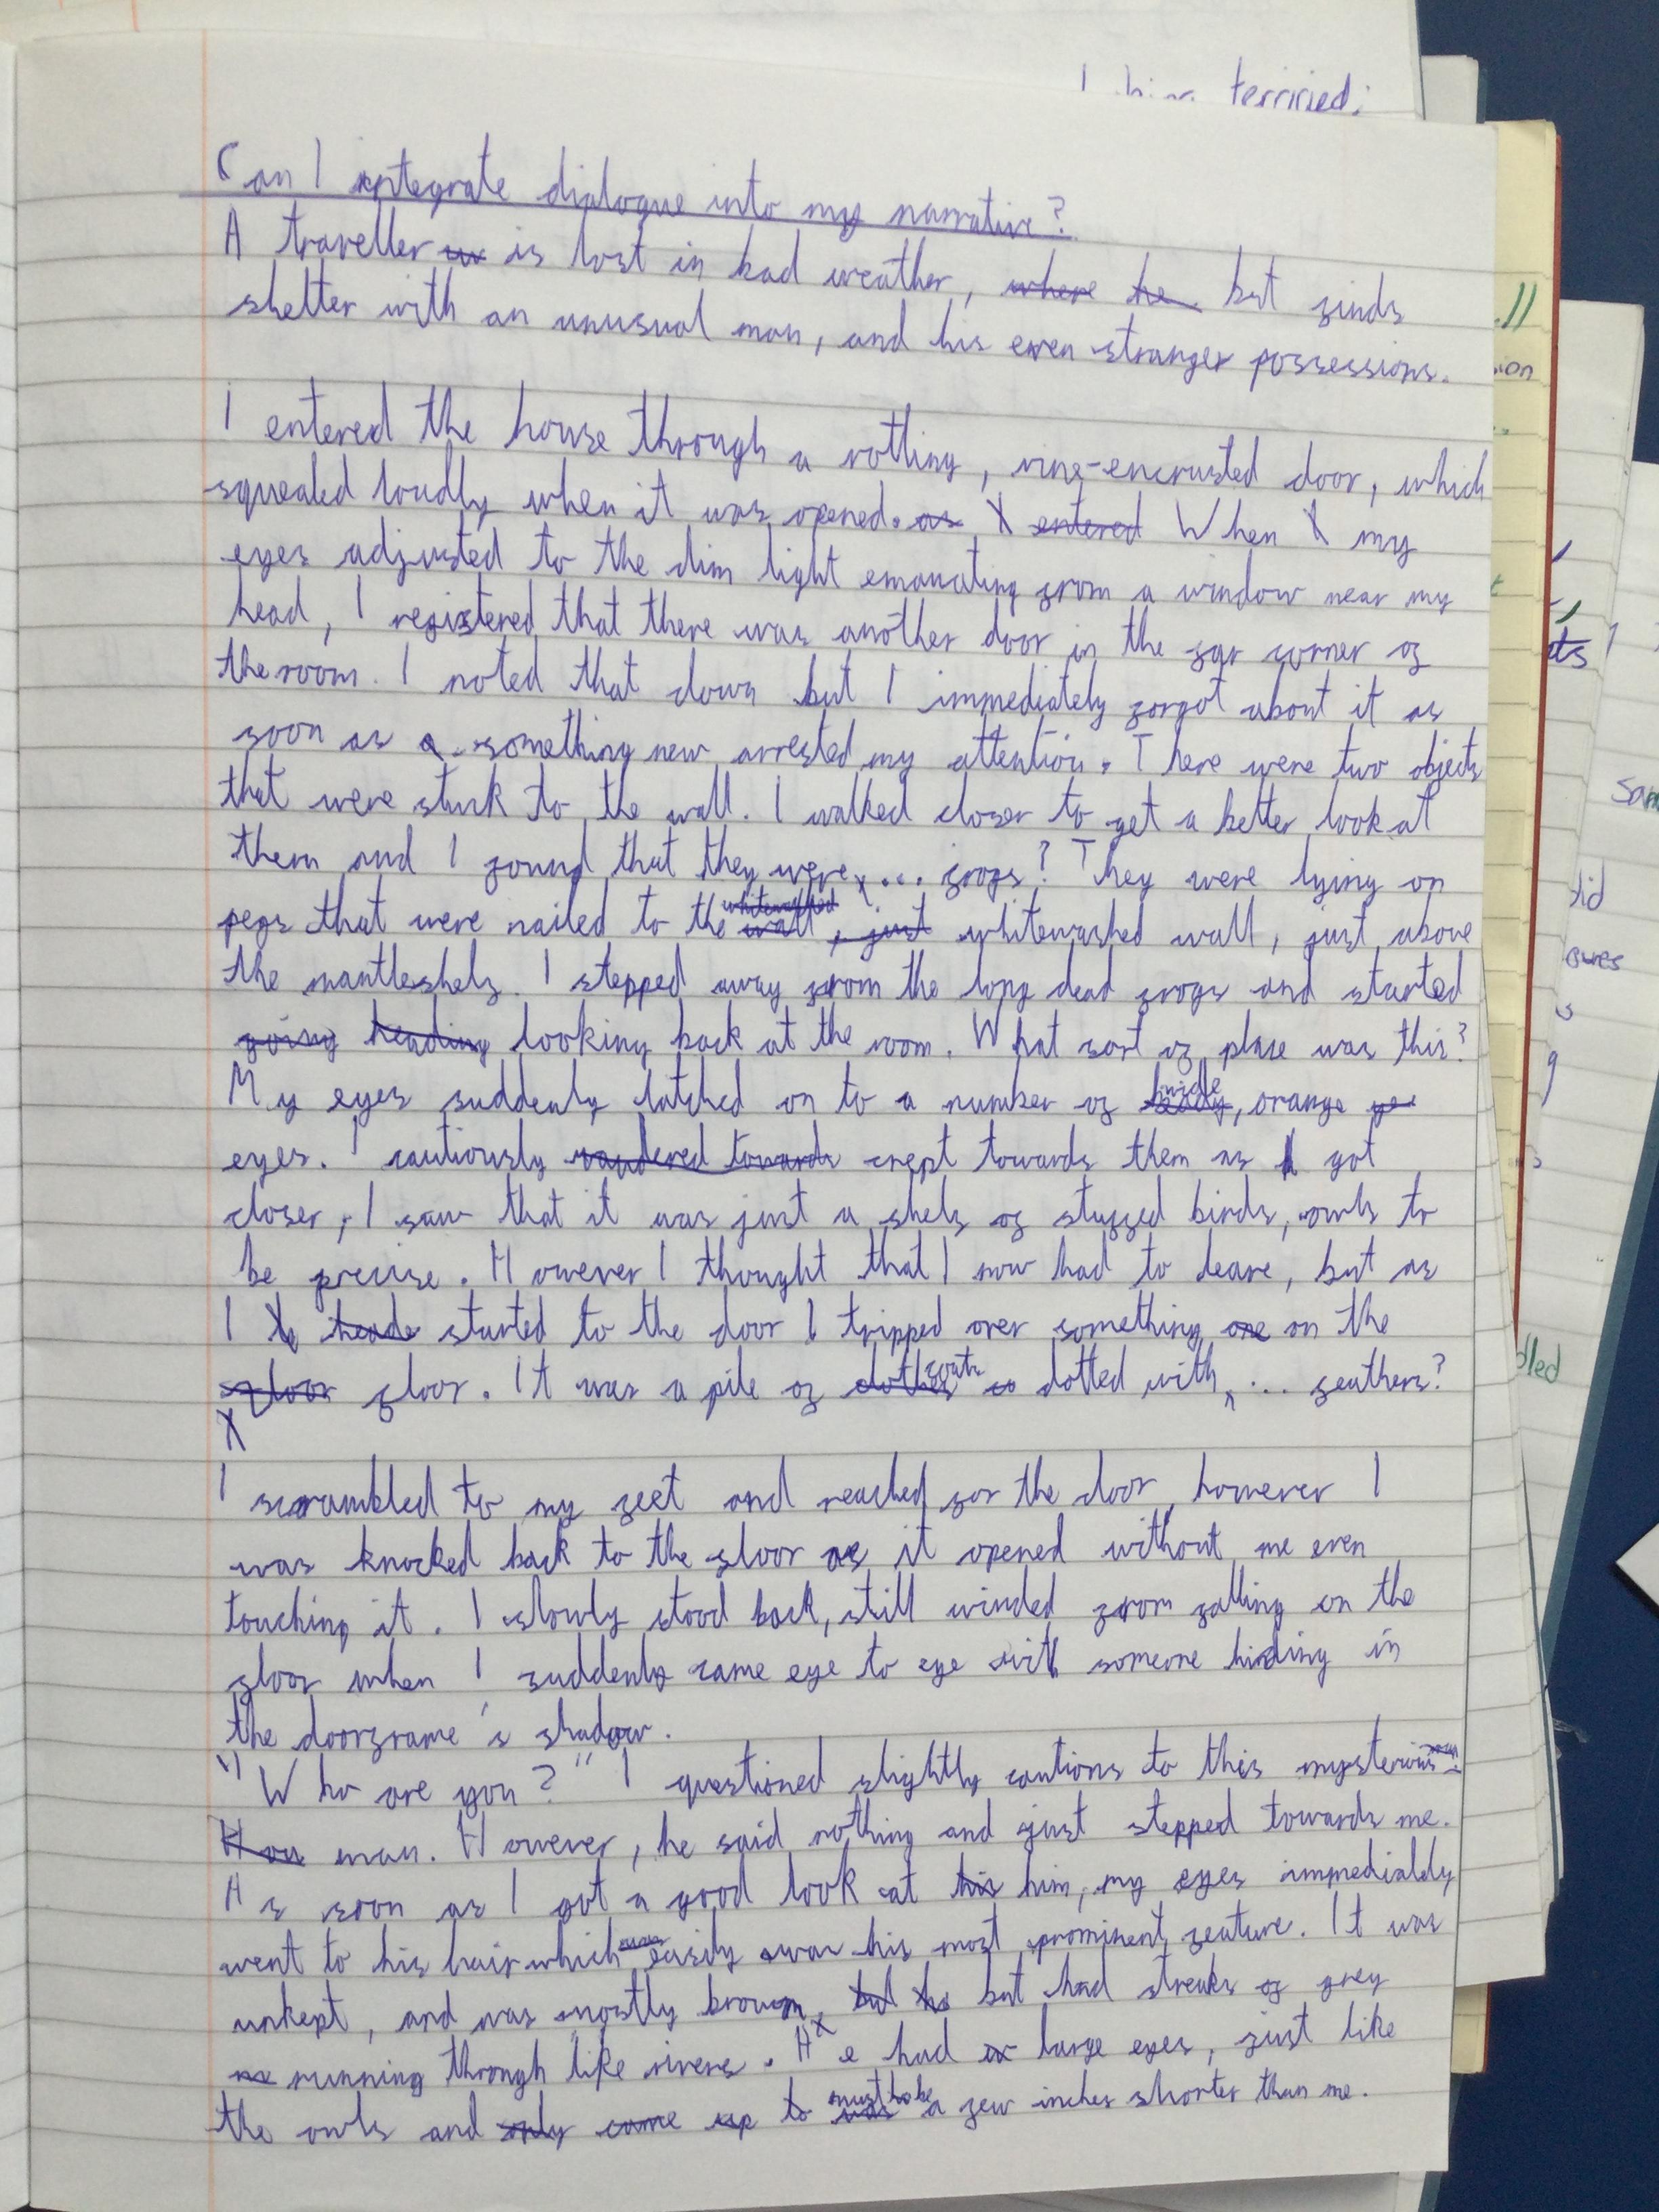 terrified;
Can I integrate dialogue into my narrative?
A traveller is lost in bad weather, where he but finds
shelter with an unusual man, and his even stranger possessions.
I entered the house through a rotting, vine-encrusted door, which
squealed loudly when it was opened. as I entered When I my
eyes adjusted to the dim light emanating from a window near my
head, I registered that there was another door in the far corner of
the room. I noted that down but I immediately forgot about it as
soon as a something new arrested my attention. There were two objects
that were stuck to the wall. I walked closer to get a better look at
them and I found that they were, ... frogs? They were lying on
whitewashed
pegs that were nailed to the wall, just whitewashed wall, just above
the mantleshelf. I stepped away from the long dead frogs and started
going heading looking back at the room. What sort of place was this?
wide
My eyes suddenly latched on to a number of beady, orange ye
eyes. I cautiously wandered towards crept towards them as I got
closer, I saw that it was just a shelf of stuffed birds, owls to
be precise. However I thought that I now had to leave, but as
I heade started to the door I tripped over something one on the
coats
floor floor. It was a pile of clothes dotted with, ... feathers?
I scrambled to my feet and reached for the door, however I
was knocked back to the floor as it opened without me even
touching it. I slowly stood back, still winded from falling on the
floor when I suddenly came eye to eye with someone hiding in
the doorframe's shadow.
"Who are you?" I questioned slightly cautions to this mysterious
How man. However, he said nothing and just stepped towards me.
As soon as I got a good look at his him, my eyes immediately
went to his hair which easily was his most prominent feature. It was
unkept, and was mostly brown, but he but had streaks of grey
running through like rivers. He had large eyes, just like
must be
the owls and only came up to was a few inches shorter than me.
ion
ets
sam
did
ques
dled